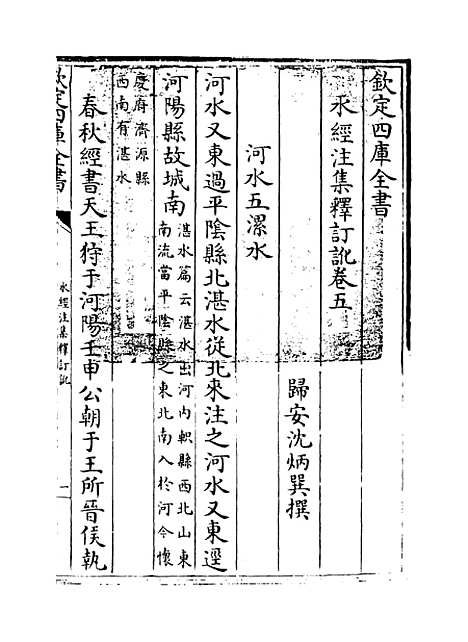 欽定四庫全書
水經注集釋訂訛卷五
歸安沈炳巽撰
河水五漯水
河水又東過平陰縣北湛水從北來注之河水又東逕
河陽縣故城南湛水篇云湛水出河内軹縣西北山東
南流當平陰縣之東北南入於河今懷
慶府濟源縣
西南有湛水
春秋經書天王狩于河陽壬申公朝于王所晉侯執
欽定四庫全書
水經注集釋訂訛
一